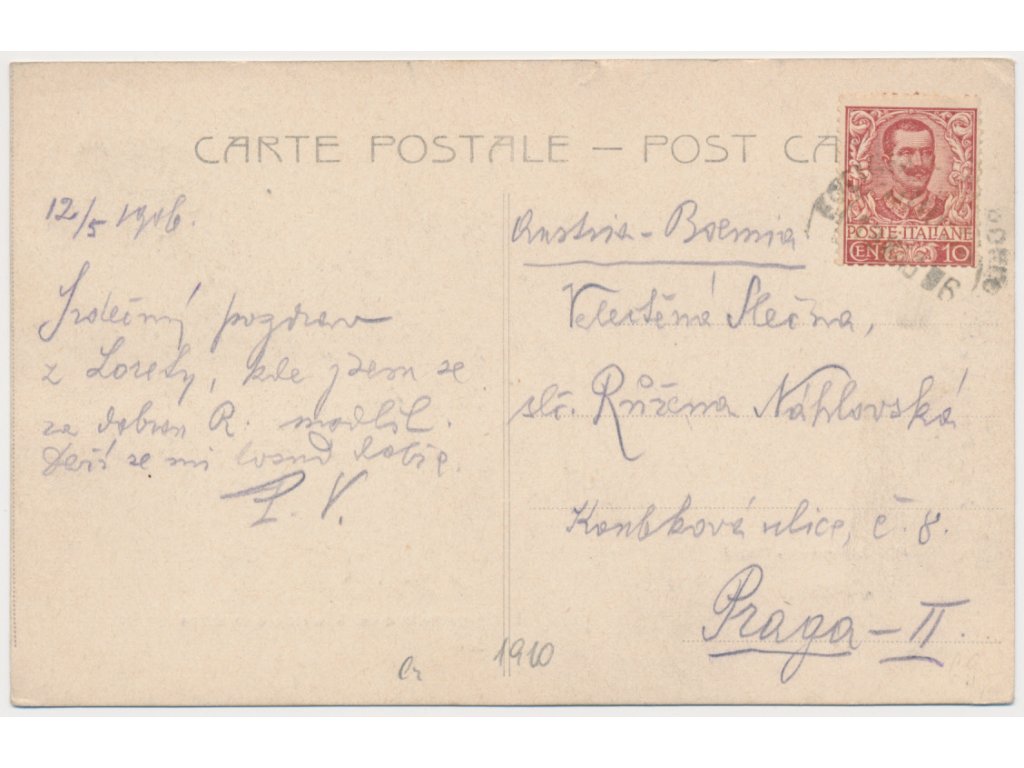 CARTE POSTALE — POST CA
12/5 1906.
Srdečný pozdrav
z Lorety, kde jsem se
za dobrou R. modlil.
se mi dobře.
P. V.
1910
POSTE·ITALIANE
CEN 10
Austria - Boemia
Velectěná Slečna,
slč. Růžena Náhlovská
ulice, č. 8.
Praga - II.